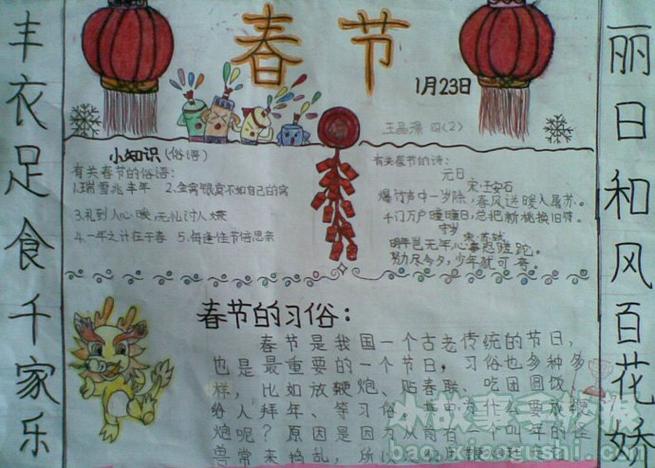 春节
1月23日
丰衣足食千家乐
丽日和风百花娇
四(2)
小知识(俗语)
有关春节的俗语:
1.瑞雪兆丰年 2.金窝银窝不如自己的窝
3.礼到人心暖,无礼讨人嫌
4.一年之计在于春 5.每逢佳节倍思亲
有关春节的诗:
元日
宋·王安石
爆竹声中一岁除,春风送暖入屠苏。
千门万户曈曈日,总把新桃换旧符。
宋·苏轼
明年岂无年 心事恐蹉跎。
努力尽今夕,少年犹可夸。
春节的习俗:
春节是我国一个古老传统的节日,
也是最重要的一个节日,习俗也多种多
样,比如放鞭炮、贴春联、吃团圆饭、
给人拜年、等习俗 为什么要放鞭
炮呢?原因是因为从前有 叫年的怪
兽常来捣乱,所以
小故事手抄报
bao.xiaogushi.com